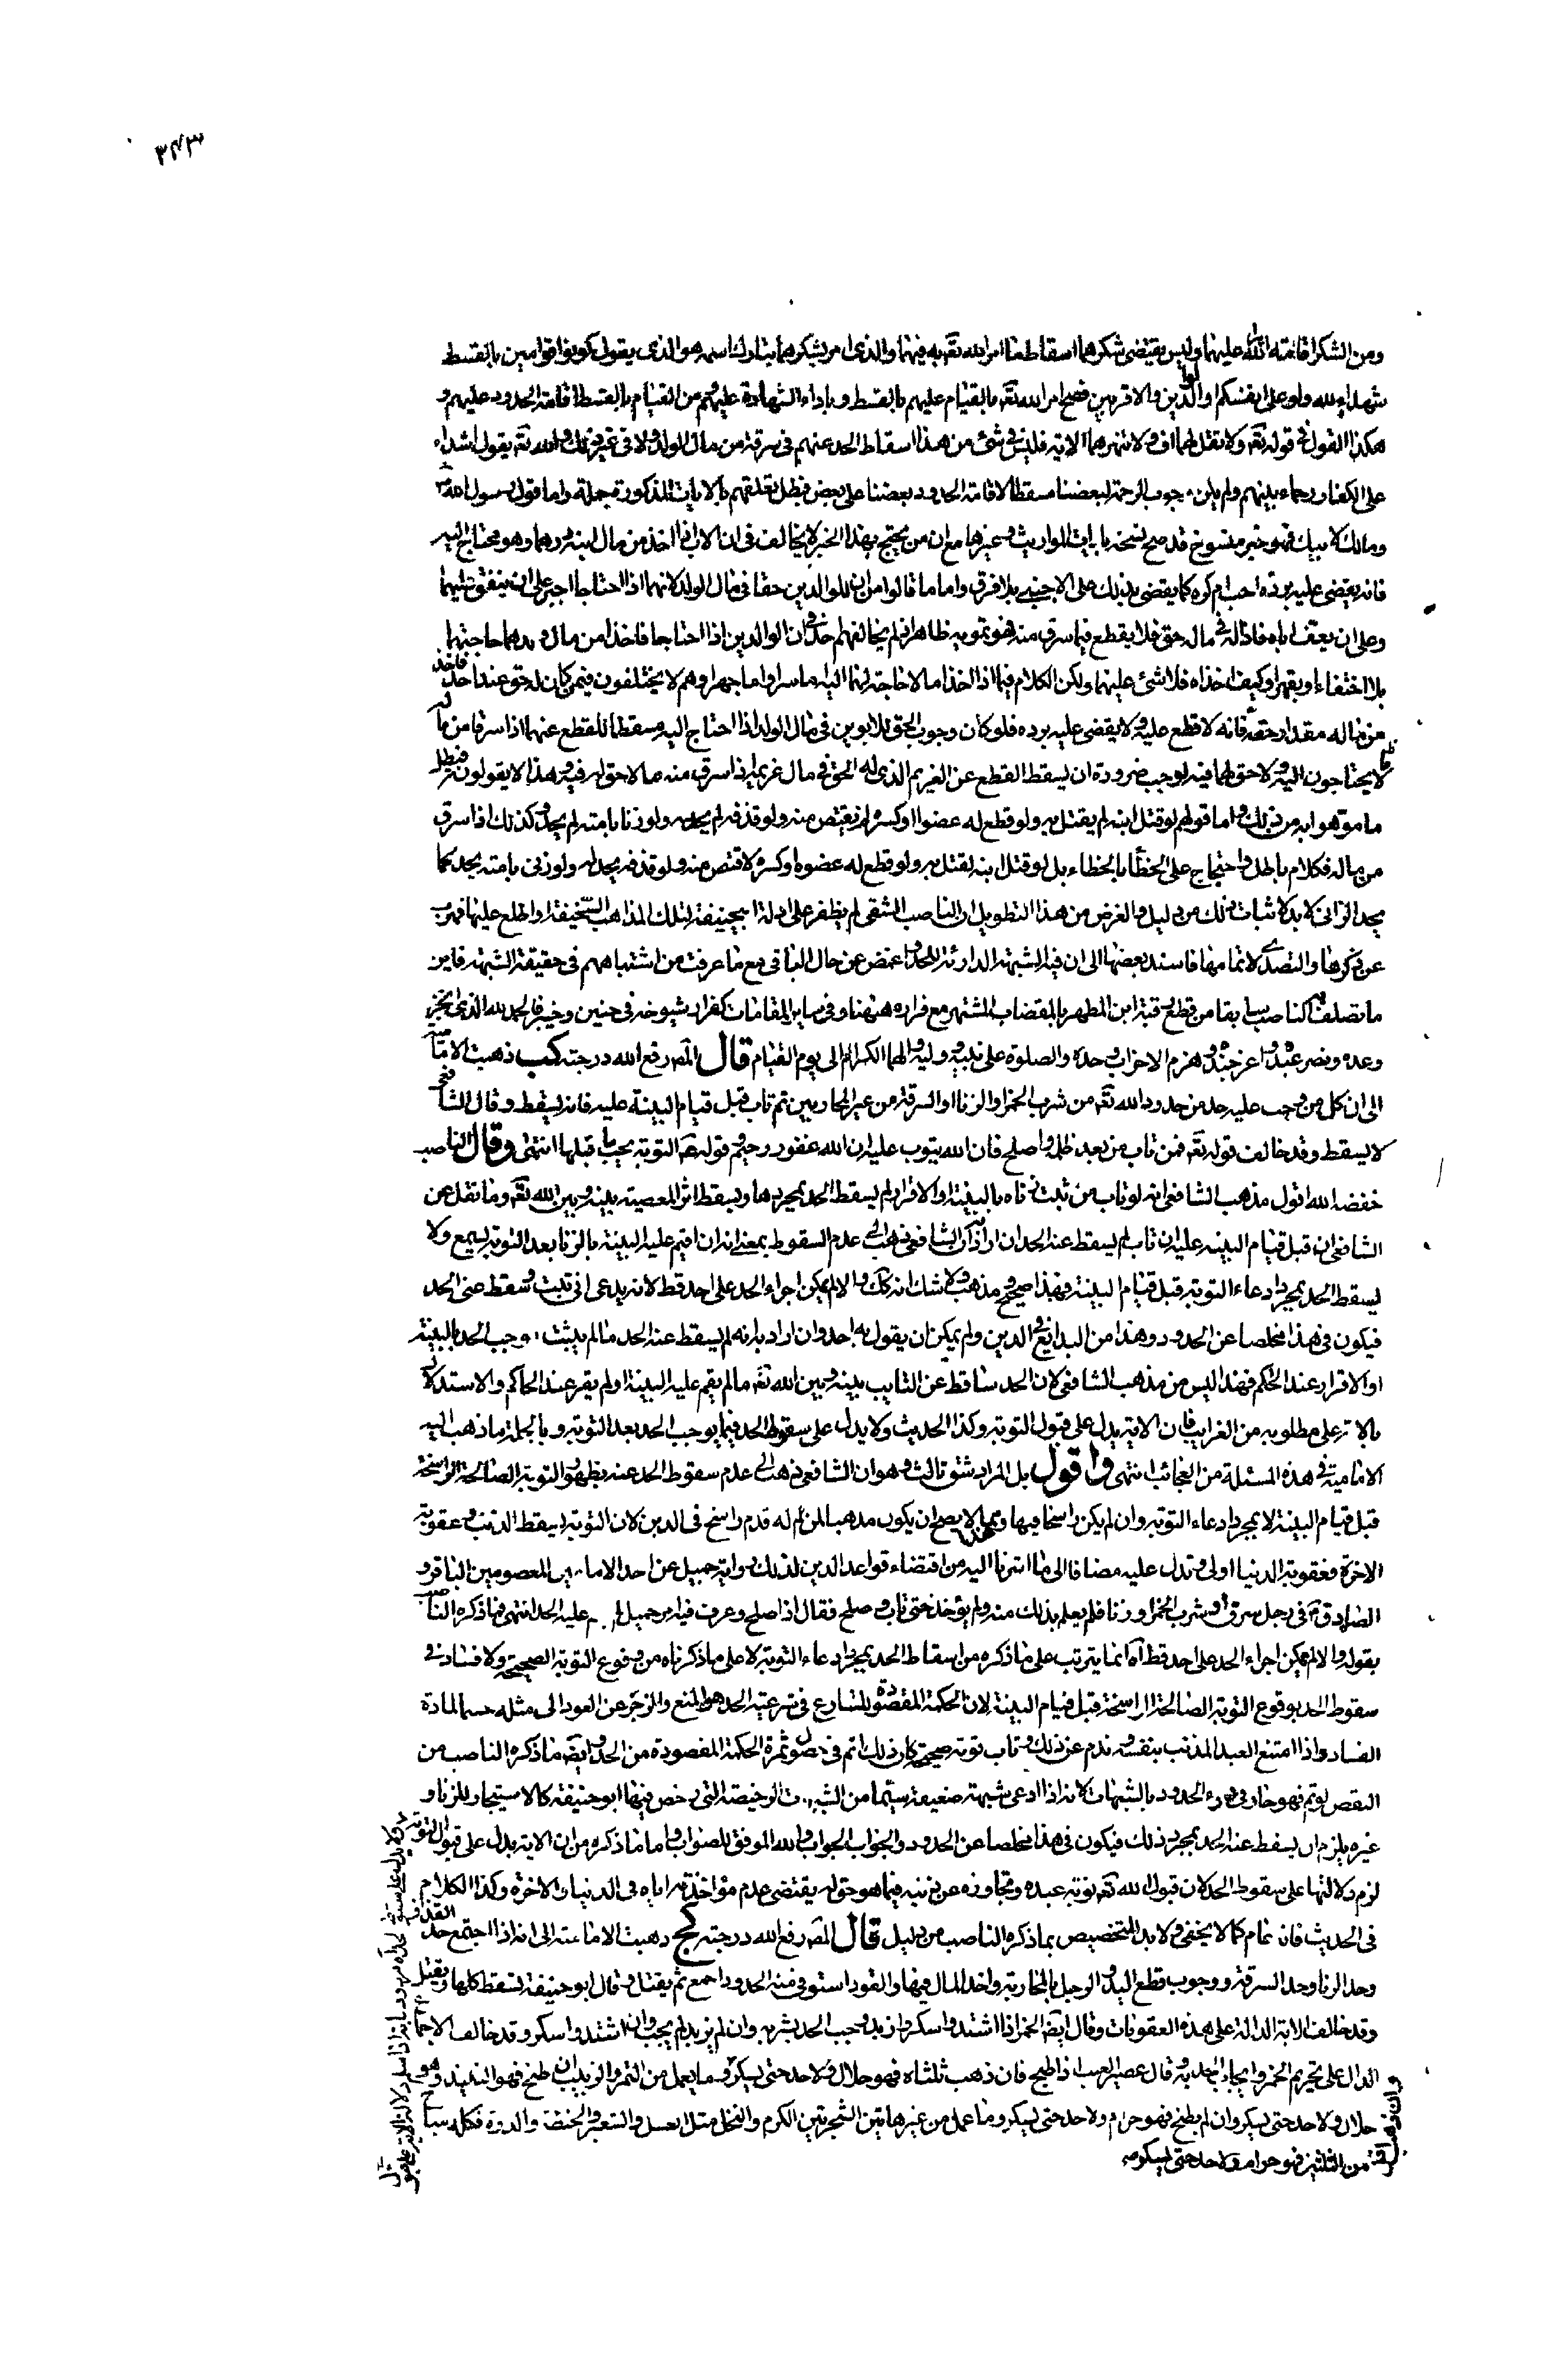 ٣٤٣
ومن الشكر اقامته الله عليهما وليس يقتضي شكرهما اسقاط ما امر الله تعه به فيهما والذي امر بشكرهما تبارك اسمه هو الذي يقول كونوا قوامين بالقسط
شهداء لله ولو على انفسكم او الوالدين والاقربين فصح امر الله تعه بالقيام عليهم بالقسط وباداء الشهادة عليهم ومن القيام بالقسط اقامة الحدود عليهم و
هكذا القول في قوله تعه ولا تقل لهما اف ولا تنهرهما الاية فليس في شئ من هذا اسقاط الحد عنهم في سرقة من مال الولد ولا في غير ذلك والله تعه يقول اشداء
على الكفار رحماء بينهم ولم يكن وجوب الرحمة لبعضنا مسقطا لاقامة الحدود بعضنا على بعض فبطل تعلقهم بالايات المذكورة جملة واما قول رسول الله ص
ومالك لابيك فهو خبر منسوخ قد صح نسخه بايات المواريث وغيرها مع ان من يحتج بهذا الخبر لا يخالف في ان الاب اذا اخذ من مال ابنه درهما وهو محتاج اليه
فانه يقضى عليه برده احب ام كره كما يقضى بذلك على الاجنبي بلا فرق واما ما قالوا من ان للوالدين حقا في مال الولد لانهما اذا احتاجا اجبر على ان ينفق عليهما
وعلى ان يعف اباه فاذا له في ماله حق فلا يقطع فيما سرق منه فهو تمويه ظاهر اذ لم يخالفهم احد في ان الوالدين اذا احتاجا فاخذا من مال ولدهما حاجتهما
بلا اختفاء او بقهر او كيف اخذاه فلا شئ عليهما ولكن الكلام فيما اذا اخذا ما لا حاجة لهما اليه اما سرا واما جهرا وهم لا يختلفون فيمن كان له حق عند احد فاخذ
من ماله مقدار حقه فانه لا قطع عليه ولا يقضى عليه برده فلو كان وجوب الحق للابوين في مال الولد اذا احتاج اليه مسقطا للقطع عنهما اذا سرقا من ماله
ما لا يحتاجون اليه ولا حق لهما فيه لوجب ضرورة ان يسقط القطع عن الغريم الذي له الحق في مال غريمه اذا سرق منه ما لا حق له فيه وهذا لا يقولون به فبطل
ما موهوا به من ذلك واما قولهم لو قتل ابنه لم يقتل به ولو قطع له عضوا او كسره لم يقتص منه ولو قذفه لم يحد له ولو زنا بامته لم يحد وكذلك اذا سرق
من ماله فكلام باطل واحتجاج على الخطأ بالخطاء بل لو قتل ابنه لقتل به ولو قطع له عضوه او كسره لاقتص منه ولو قذفه يحد له ولو زنى بامته يحد كما
يحد الزاني لا بد لاثبات ذلك من دليل والغرض من هذا التطويل ان الناصب الشقي لم يظفر على ادلة ابي حنيفة لتلك المذاهب السخيفة او اطلع عليها فهرب
عن ذكرها والتصدي لاتمامها فاسند بعضها الى ان فيه الشبهة الدارئة للحد واغمض عن حال الباقي مع ما عرفت من اشتباههم في حقيقة الشبهة فاين
ما تصلف الناصب سابقا من قطع رقبة ابن المطهر بالمقضاب المشتهر مع فراره ههنا وفي ساير المقامات كفرار شيوخه في حنين وخيبر فالحمد لله الذي انجز
وعده ونصر عبده واعز جنده وهزم الاحزاب وحده والصلوة على نبيه ووليه والهما الكرام الى يوم القيام قال المصـ رفع الله درجته كب ذهبت الامامية
الى ان كل من وجب عليه حد من حدود الله تعه من شرب الخمر او الزنا او السرقة من غير المحاربين ثم تاب قبل قيام البينة عليه فانه يسقط وقال الشافعي
لا يسقط وقد خالف قوله تعه فمن تاب من بعد ظلمه واصلح فان الله يتوب عليه ان الله غفور رحيم وقوله ع التوبة يجب ما قبلها انتهى وقال الناصب
خفضه الله اقول مذهب الشافعي انه لو تاب من ثبت زناه بالبينة او الاقرار لم يسقط الحد بمجردها ويسقط اثر المعصية بينه وبين الله تعه وما نقل عن
الشافعي ان قبل قيام البينة عليه ان تاب لم يسقط عنه الحد ان اراد ان الشافعي ذهب الى عدم السقوط بمعنى انه ان اقيم عليه البينة بالزنا بعد التوبة يسمع ولا
يسقط الحد بمجرد ادعاء التوبة قبل قيام البينة فهذا صحيح ومذهب ولا شك انه كك والا لم يمكن اجراء الحد على احد قط لانه يدعى اني تبت وسقط عني الحد
فيكون في هذا مخلصا عن الحدود وهذا من البدايع في الدين ولم يمكن ان يقول به احد وان اراد بانه لم يسقط عنه الحد ما لم يثبت وجب الحد بالبينة
او الاقرار عند الحكم فهذا ليس من مذهب الشافعي لان الحد ساقط عن التايب بينه وبين الله تعه ما لم يقم عليه البينة او لم يقر عند الحاكم والاستدلال
بالاية على مطلوبه من الغرايب فان الاية يدل على قبول التوبة وكذا الحديث ولا يدل على سقوط الحد فيما يوجب الحد بعد التوبة وبالجملة ما ذهب اليه
الامامية في هذه المسئلة من العجائب انتهى واقول بل المراد شق ثالث وهو ان الشافعي ذهب الى عدم سقوط الحد عنه بظهور التوبة الصالحة الراسخة
قبل قيام البينة لا بمجرد ادعاء التوبة وان لم يكن راسخا فيها وهذا مما لا يصح ان يكون مذهبا لمن له قدم راسخ في الدين لان التوبة يسقط الذنب وعقوبة
الاخرة فعقوبة الدنيا اولى وتدل عليه مضافا الى ما اشرنا اليه من اقتضاء قواعد الدين لذلك رواية جميل عن احد الامامين المعصومين الباقر و
الصادق ع في رجل سرق او شرب الخمر او زنا فلم يعلم بذلك منه ولم يؤخذ حتى تاب وصلح فقال اذا صلح وعرف فيه امر جميل لم يقم عليه الحد انتهى وما ذكره الناصب
بقوله والا لم يمكن اجراء الحد على احد قط اه انما يترتب على ما ذكره من اسقاط الحد بمجرد ادعاء التوبة لا على ما ذكرناه من وقوع التوبة الصحيحة ولا فساد في
سقوط الحد بوقوع التوبة الصالحة الراسخة قبل قيام البينة لان الحكمة المقصودة للشارع في شرعية الحد هو المنع والزجر عن العود الى مثله حسما لمادة
الفساد واذا امتنع العبد المذنب بنفسه وندم عن ذلك وتاب توبة صحيحة كان ذلك اتم في حصول ثمرة الحكمة المقصودة من الحد وايضه ما ذكره الناصب من
النقص لو تم فهو جار في درء الحدود بالشبهات لانه اذا ادعى شبهة ضعيفة سيما من الشبهات الرخيصة التي رخص فيها ابو حنيفة كالاستيجار للزنا و
غيره يلزم ان يسقط عنه الحد بمجرد ذلك فيكون في هذا مخلصا عن الحدود والجواب الجواب والله الموفق للصواب واما ما ذكره من ان الاية يدل على قبول التوبة
لزم دلالتها على سقوط الحد لان قبول الله تعه توبة عبده وتجاوزه عن ذنبه فيما هو حق له يقتضى عدم مؤاخذته اياه في الدنيا والاخرة وكذا الكلام
في الحديث فانه عام كما لا يخفى ولا بد للتخصيص بما ذكره الناصب من دليل قال المصـ رفع الله درجته كج ذهبت الامامية الى انه اذا اجتمع حد القذف
وحد الزنا وحد السرقة ووجوب قطع اليد والرجل بالمحاربة واخذ المال فيها والقود استوفى منه الحدود اجمع ثم يقتل وقال ابو حنيفة تسقط كلها ويقتل
وقد خالف الاية الدالة على هذه العقوبات وقال ايضه الخمر اذا اشتد واسكر وازبد وجب الحد بشربه وان لم يزبد لم يجب وان اشتد واسكر وقد خالف الاجماع
الدال على تحريم الخمر وايجاب الحد به وقال عصير العنب اذا طبخ فان ذهب ثلثاه فهو حلال ولا حد حتى يسكر وما يعمل من التمر والزبيب ان طبخ فهو النبيذ وهو
حلال ولا حد حتى يسكر وان لم يطبخ فهو حرام ولا حد حتى يسكر وما عمل من غير هاتين الشجرتين الكرم والنخل مثل العسل والشعير والحنطة والذرة فكله مباح
من الثلثين فهو حرام ولا حد حتى يسكر